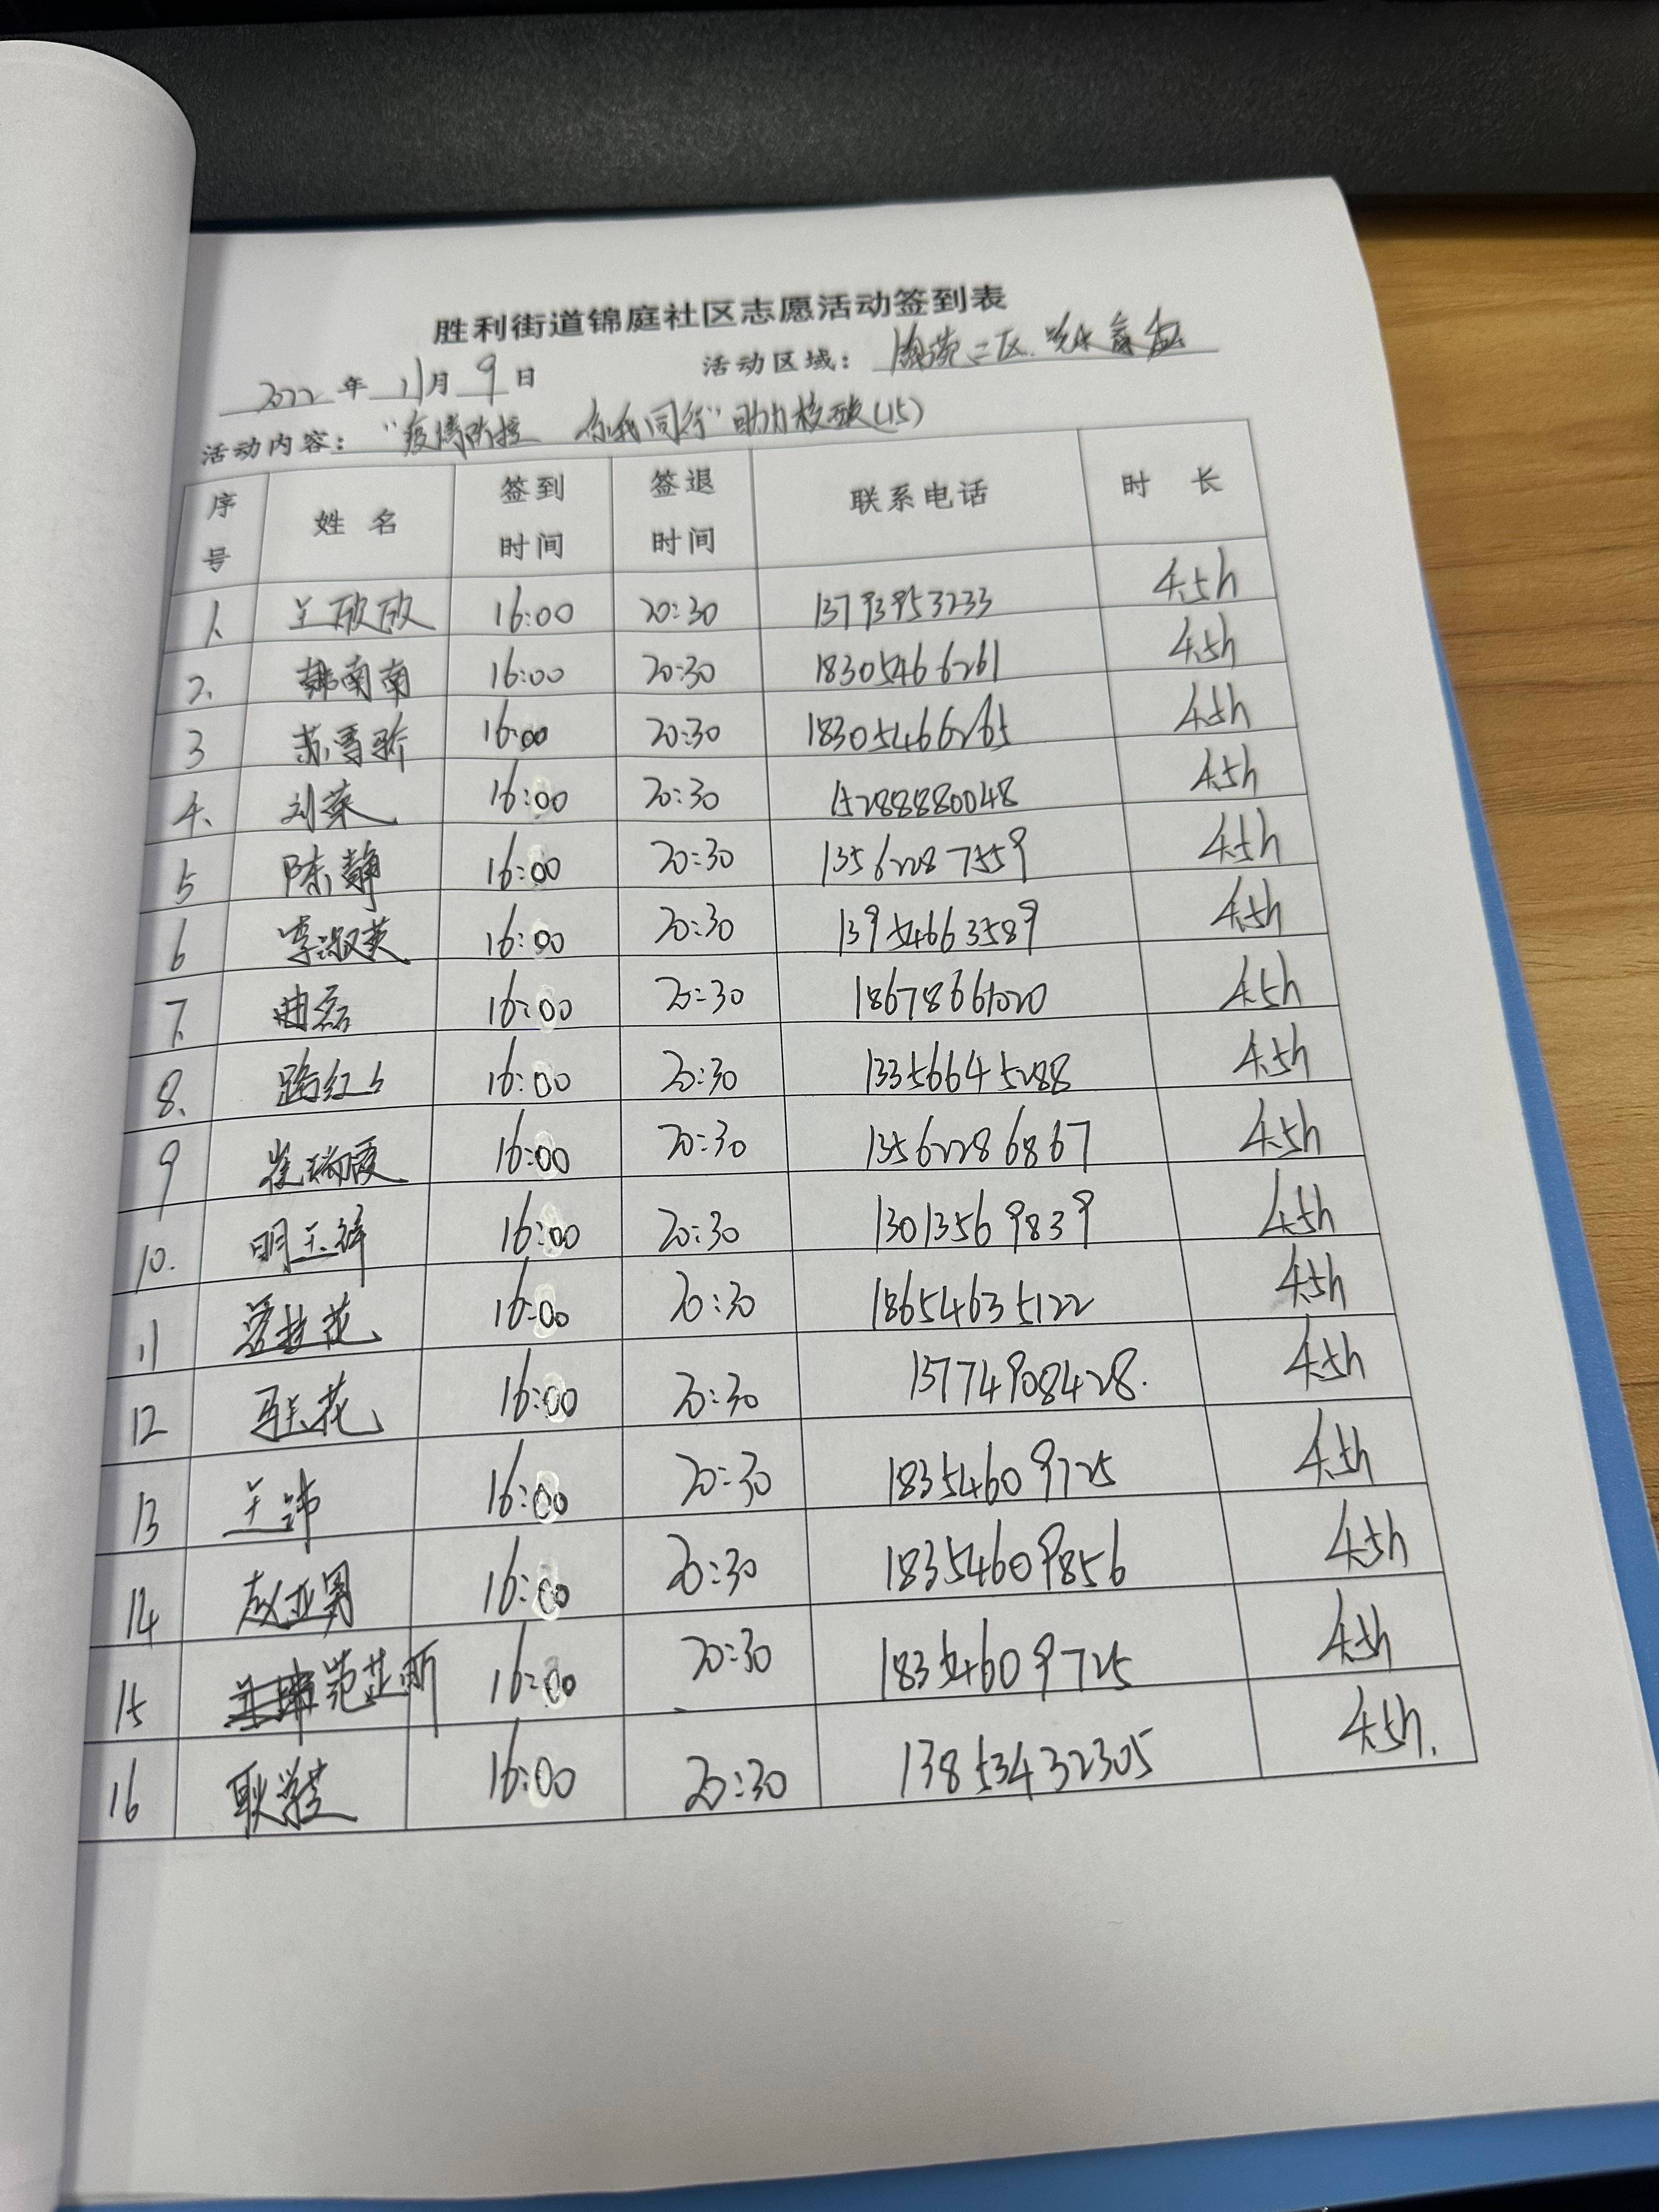 胜利街道锦庭社区志愿活动签到表
2022年11月9日 活动区域: 二区
活动内容: "疫情防控 你我同行"助力核酸(15)
序号 姓名 签到时间 签退时间 联系电话 时长
1. 王欣欣 16:00 20:30 13793953233 4.5h
2. 韩南南 16:00 20:30 18305466261 4.5h
3 苏雪娇 16:00 20:30 18305466265 4.5h
4. 刘荣 16:00 20:30 15288880048 4.5h
5 陈静 16:00 20:30 13562287559 4.5h
6 李淑英 16:00 20:30 13954663589 4.5h
7. 曲磊 16:00 20:30 18678661020 4.5h
8. 路红 16:00 20:30 13356645288 4.5h
9 崔瑞霞 16:00 20:30 13562286867 4.5h
10. 明玉 16:00 20:30 13013569839 4.5h
11 花 16:00 20:30 18654635122 4.5h
12 花 16:00 20:30 13774908428. 4.5h
13 王玮 16:00 20:30 18354609725 4.5h
14 赵亚男 16:00 20:30 18354609856 4.5h
15 范芷昕 16:00 20:30 18354609725 4.5h
16 耿 16:00 20:30 13853432305 4.5h.